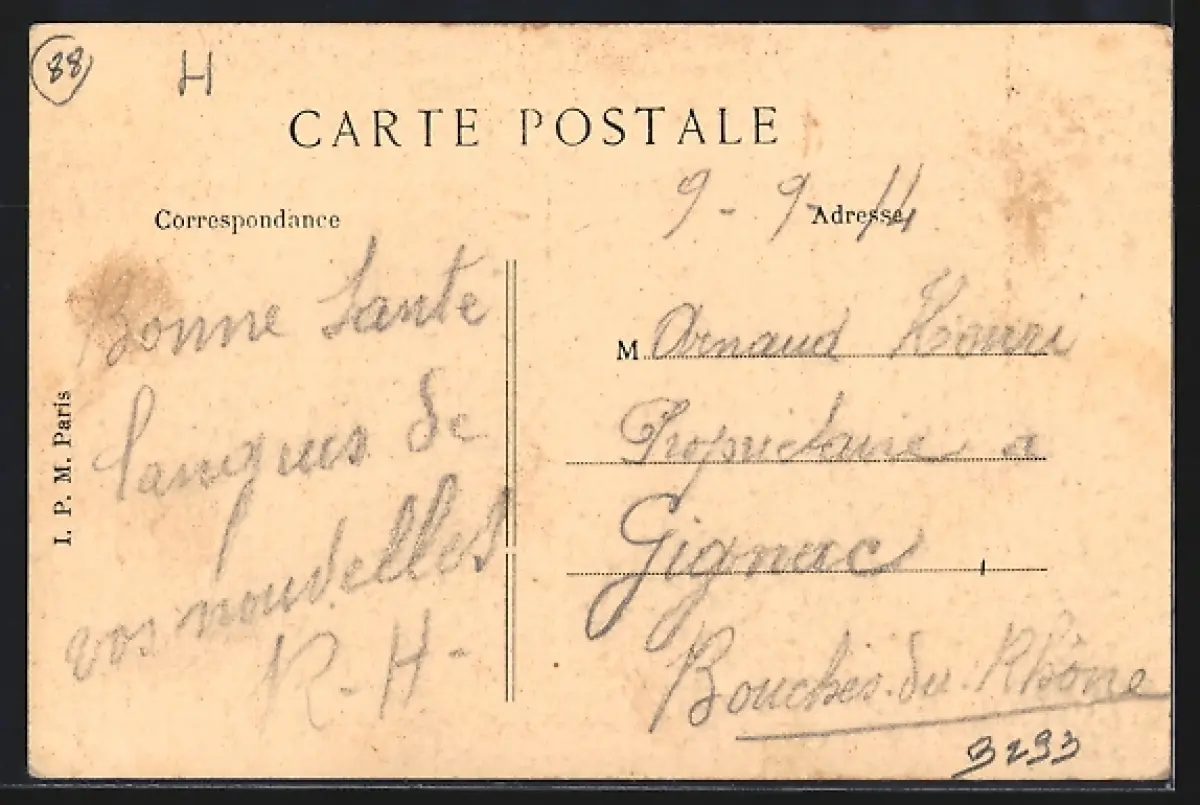 88
H
CARTE POSTALE
9-9-14
Correspondance
Adresse
Bonne Sante
languis de
vos nouvelles
R-H-
M Arnaud Henri
Proprietaire a
Gignac
Bouches-du-Rhône
3293
I. P. M. Paris